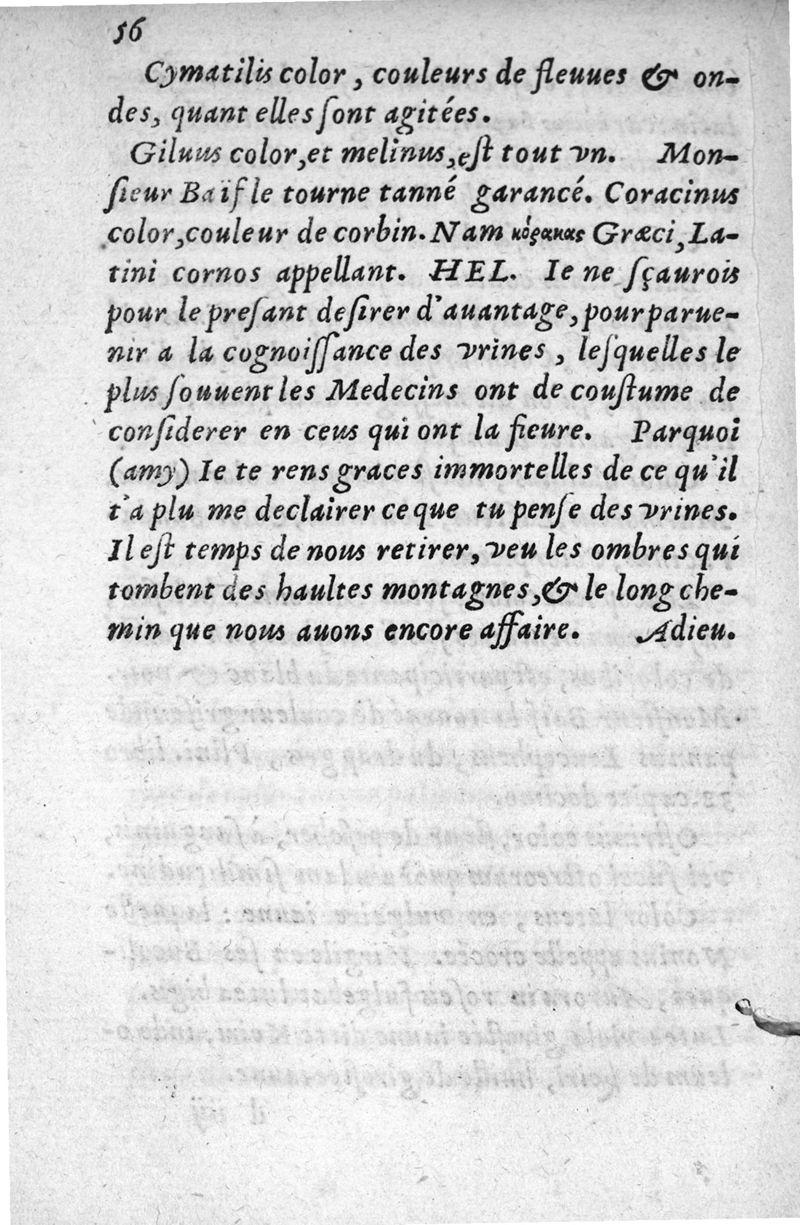 56
Cymatilis color, couleurs de fleuues & on-
des, quant elles ſont agitées.
Giluus color, et melinus, eſt tout vn. Mon-
ſieur Baïf le tourne tanné garancé. Coracinus
color, couleur de corbin. Nam κόρακας Græci, La-
tini cornos appellant. HEL. Ie ne ſçaurois
pour le preſant deſirer d'auantage, pour parue-
nir a la cognoiſſance des vrines, leſquelles le
plus ſouuent les Medecins ont de couſtume de
conſiderer en ceus qui ont la fieure. Parquoi
(amy) Ie te rens graces immortelles de ce qu'il
t'a plu me declairer ce que tu penſe des vrines.
Il eſt temps de nous retirer, veu les ombres qui
tombent des haultes montagnes, & le long che-
min que nous auons encore affaire. Adieu.